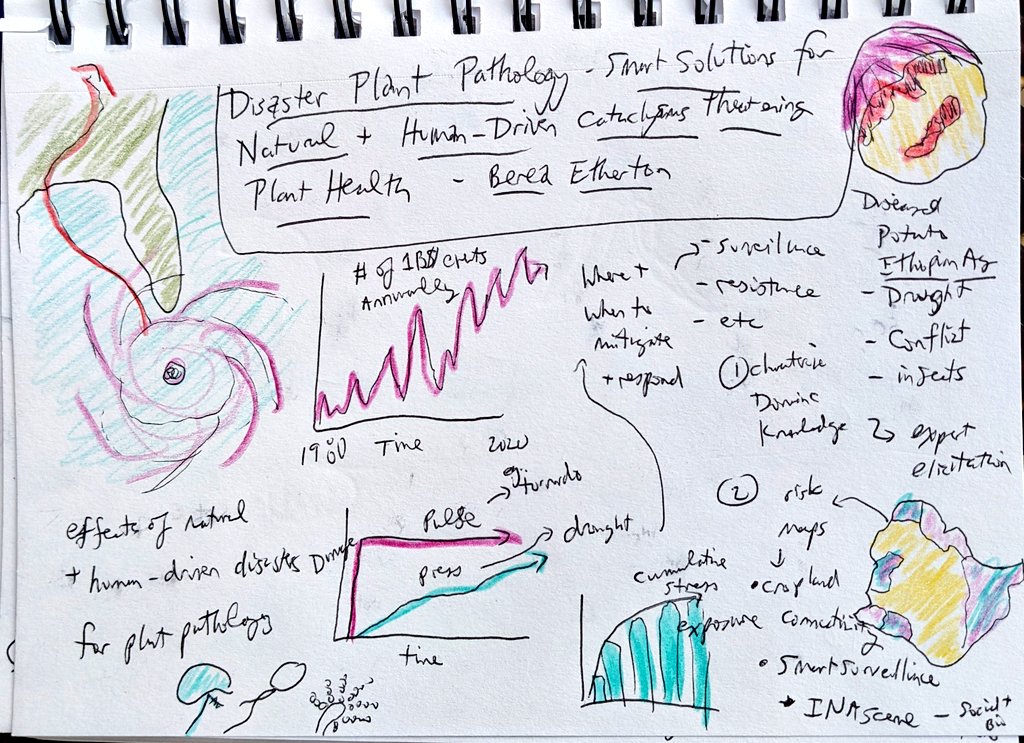 Disaster Plant Pathology - Smart Solutions for
Natural + Human-Driven Cataclysms threatening
Plant Health - Berea Etherton
# of 1B$ events
Annually
1980 Time 2020
where +
when to
mitigate
+ respond
- surveilance
- resistence
- etc
① 
Domain
Knowledge
expert
elicitation
Diseased
Potato
Ethiopian Ag
- Drought
- Conflict
- insects
effects of natural
+ human-driven disasters
for plant pathology
Damage
Pulse
eg tornado
press
drought
time
cumulative
stress
exposure
② risk
maps
• cropland
connectivity
• Smart surveillence
INA scene - Social +
Bio